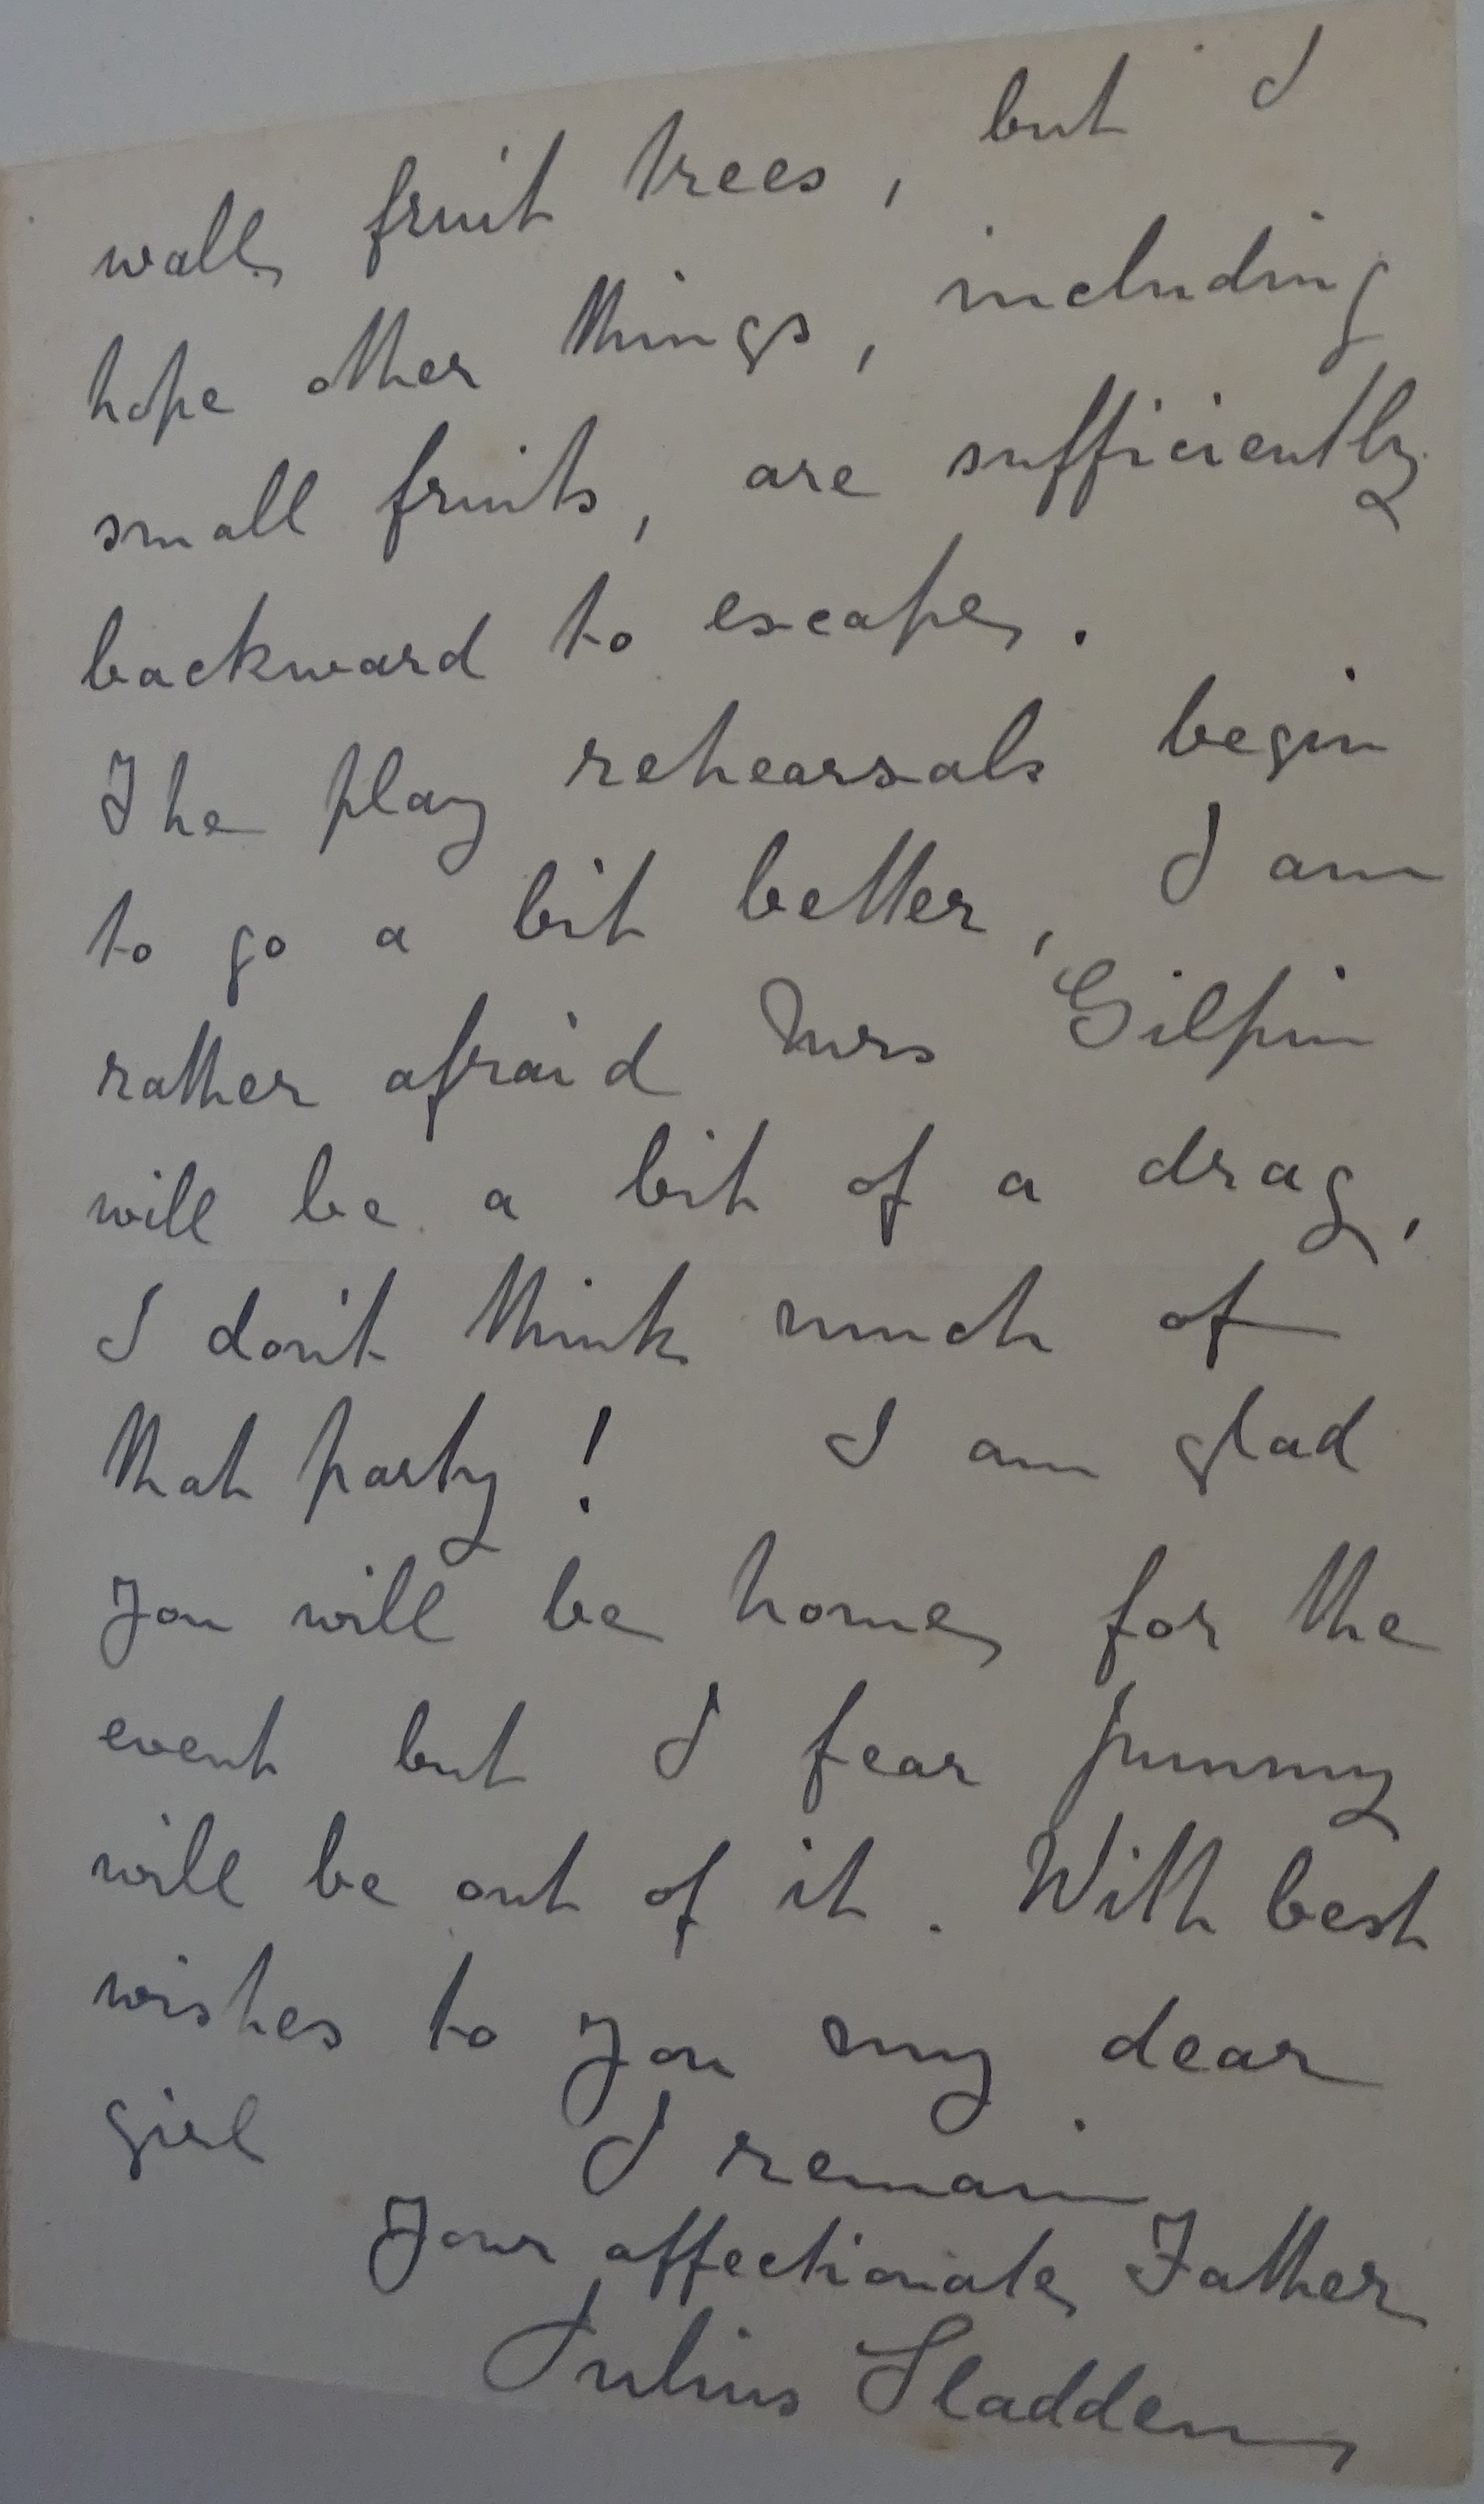 wall fruit trees, but I
hope other things, including
small fruits, are sufficiently
backward to escape.
The play rehearsals begin
to go a bit better, I am
rather afraid Mrs Gilpin
will be a bit of a drag,
I don't think much of
that party! I am glad
you will be home for the
event but I fear Jummy
will be out of it. With best
wishes to you my dear
girl I remain
Your affectionate Father
Julius Sladden